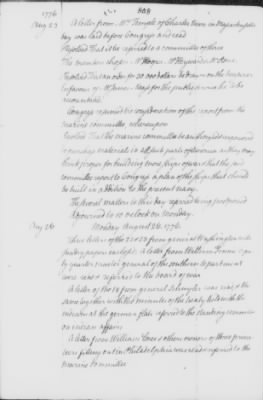 808
1776
Aug 23 A letter from Mr Temple of Charles town in Massachusetts
bay was laid before Congress and read
Resolved That it be referred to a committee of three
The members chosen Mr Hooper Mr Heyward Mr Stone
Resolved That an order for 20,000 dollars be drawn on the treasurer
in favour of Mr James Mease for the public use he to be
accountable
Congress resumed the consideration of the report from the
marine committee whereupon
Resolved That the marine committee be authorized
to purchase materials in different parts of America as they may
think proper for building more ships of war & that the said
committee report to Congress a plan of the ships that should
be built in addition to the present navy.
The several matters to this day referred being postponed
Adjourned to 10 o'clock on Monday.
Aug 26 Monday August 26. 1776.
Three letters of the 22 & 23 from general Washington with
sundry papers enclosed & A letter from William
quarter master general of the southern department
were read & referred to the board of war
A letter of the 18 from general Schuyler was read & the
same together with the minutes of the treaty held with the
indians at the german flats referred to the standing committee
on indian affairs
A letter from William and others owners of three
were fitting out in Philadelphia was read & referred to the
marine committee